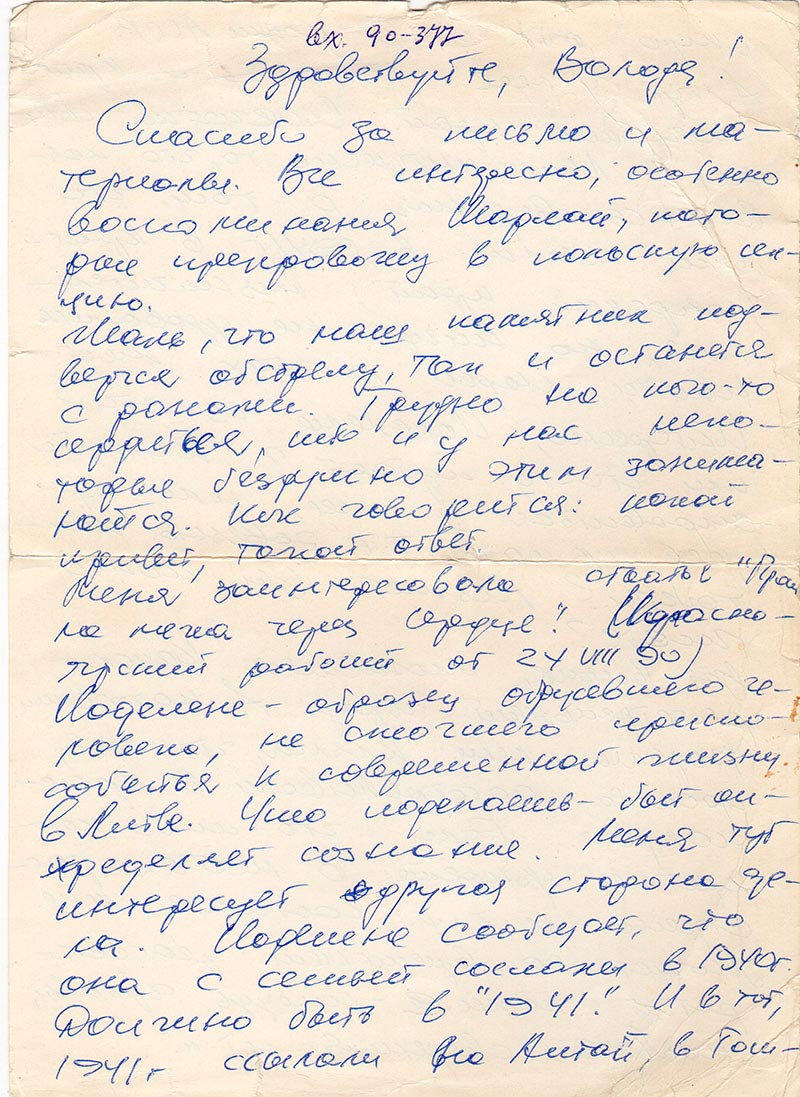 вх. 90-377
Здравствуйте, Володя!
Спасибо за письмо и ма-
териалы. Все интересно, особенно
воспоминания Шарлай, кото-
рые препровожу в польскую сек-
цию.
Жаль, что наш памятник под-
вергся обстрелу, так и останется
с ранами. Трудно на кого-то
сердиться, что и у нас неко-
торые безумно этим занима-
ются. Как говорится: какой
привет, такой ответ.
Меня заинтересовала статья "Грани-
ца легла через сердце". (Красно-
ярский рабочий от 24 VIII 90)
– образец обрусевшего че-
ловека, не смогшего приспо-
собиться к современной жизни
в Литве. Что поделаешь – быт оп-
ределяет сознание. Меня тут
интересует другая сторона де-
ла. сообщает, что
она с семьей сосланы в 1940г.
Должно быть в "1941". И в тот,
1941г ссылали на Алтай, в Том-